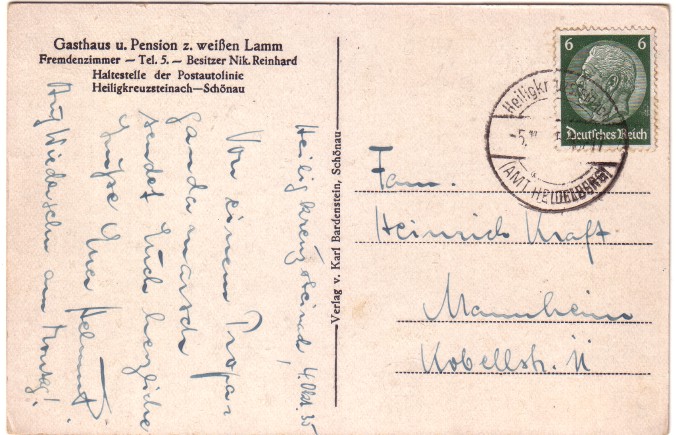 Gasthaus u. Pension z. weißen Lamm
Fremdenzimmer — Tel. 5. — Besitzer Nik. Reinhard
Haltestelle der Postautolinie
Heiligkreuzsteinach—Schönau
Heiligkreuzsteinach, 4. Okt. 35
Von einem Propa-
gandamarsch
sendet Euch herzliche
Grüße Euer Helmut
Auf Wiedersehn am Montag!
Verlag v. Karl Bardenstein, Schönau
6 6
Deutsches Reich
(AMT HEIDELBERG)
Fam.
Heinrich Kraft
Mannheim
Kobellstr. 11